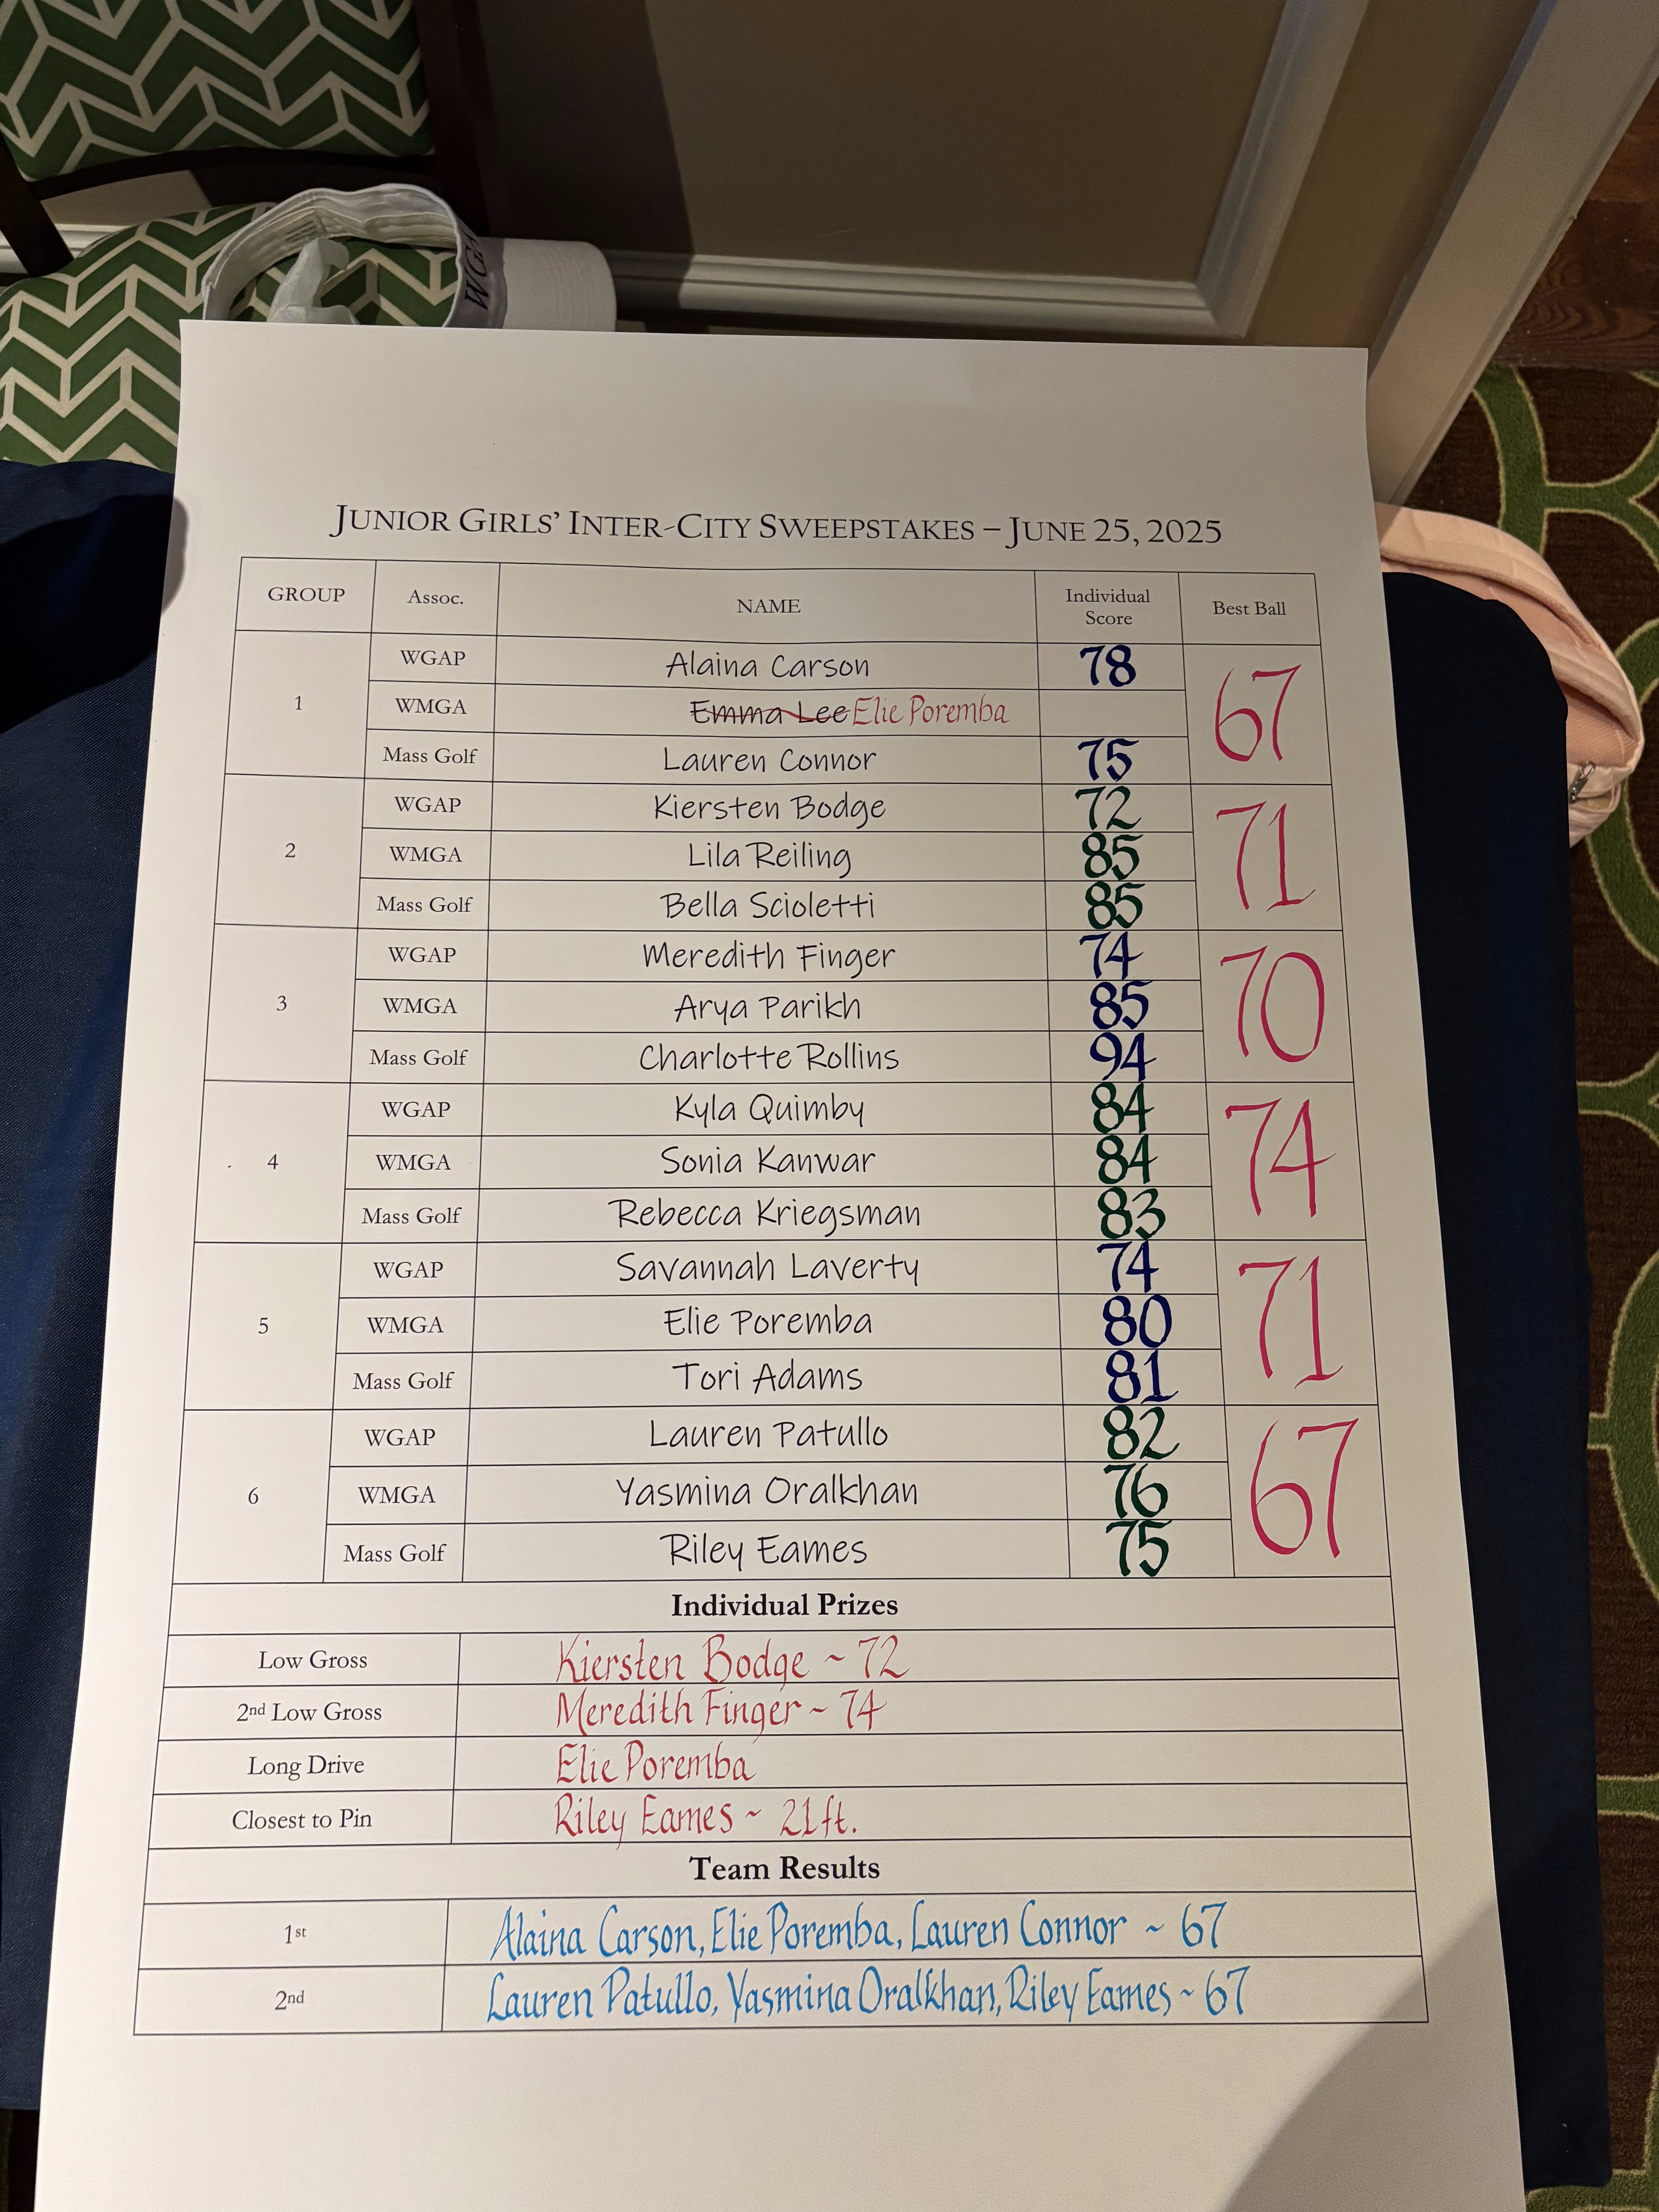 WGA
JUNIOR GIRLS' INTER-CITY SWEEPSTAKES – JUNE 25, 2025
GROUP Assoc. NAME Individual Score Best Ball
1 WGAP Alaina Carson 78 67
WMGA Emma Lee Elie Poremba
Mass Golf Lauren Connor 75
2 WGAP Kiersten Bodge 72 71
WMGA Lila Reiling 85
Mass Golf Bella Scioletti 85
3 WGAP Meredith Finger 74 70
WMGA Arya Parikh 85
Mass Golf Charlotte Rollins 94
4 WGAP Kyla Quimby 84 74
WMGA Sonia Kanwar 84
Mass Golf Rebecca Kriegsman 83
5 WGAP Savannah Laverty 74 71
WMGA Elie Poremba 80
Mass Golf Tori Adams 81
6 WGAP Lauren Patullo 82 67
WMGA Yasmina Oralkhan 76
Mass Golf Riley Eames 75
Individual Prizes
Low Gross Kiersten Bodge ~ 72
2nd Low Gross Meredith Finger ~ 74
Long Drive Elie Poremba
Closest to Pin Riley Eames ~ 21ft.
Team Results
1st Alaina Carson, Elie Poremba, Lauren Connor ~ 67
2nd Lauren Patullo, Yasmina Oralkhan, Riley Eames ~ 67